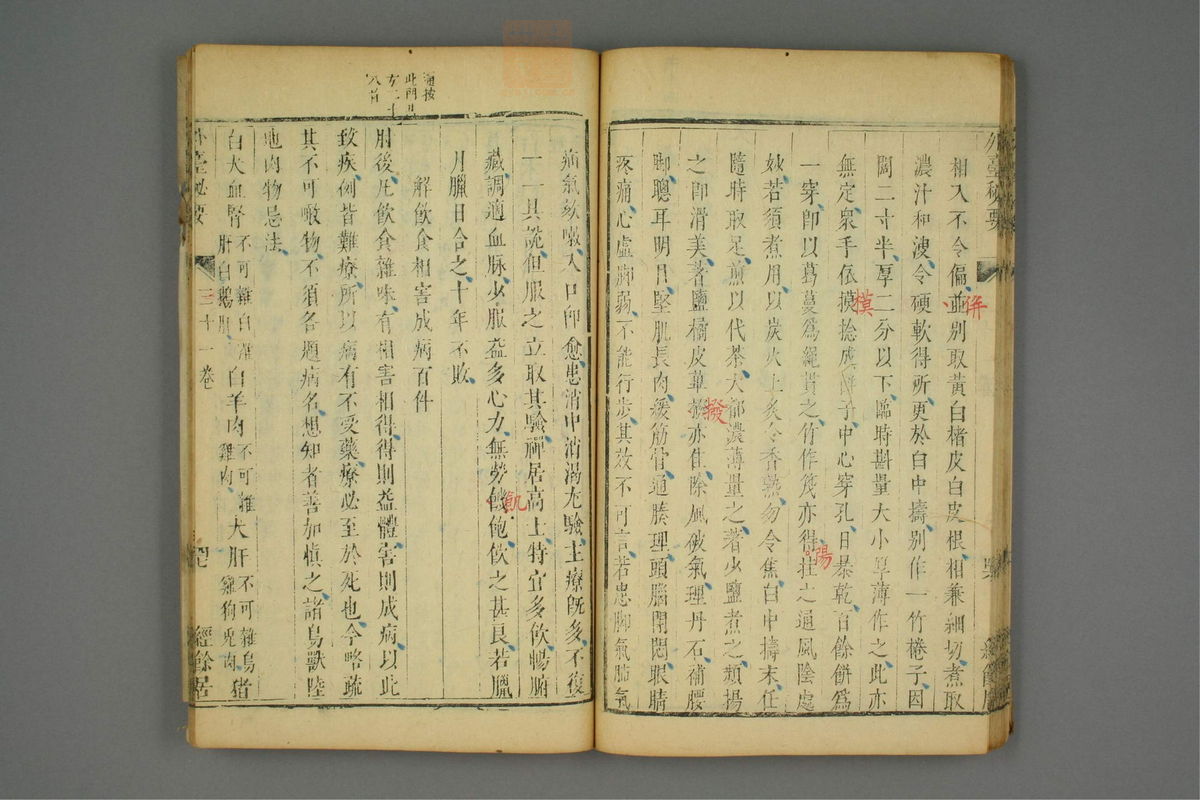 外臺秘要
相入不令偏並別取黃白楮皮白皮根相兼細切煮取
濃汁和溲令硬軟得所更於臼中擣別作一竹棬子因
闊二寸半厚二分以下臨時斟量大小厚薄作之此亦
無定眾手依摸捻成餅子中心穿孔日暴乾百餘餅為
一穿即以葛蔓為繩貫之竹作筏亦得挂之通風陰處
妙若須煮用以炭火上炙令香熟勿令焦臼中擣末任
隨時取足煎以代茶大都濃薄量之著少鹽煮之頻揚
之即滑美著鹽橘皮蓽撥亦佳除風破氣理丹石補腰
腳聰耳明目堅肌長肉緩筋骨通腠理頭腦閉悶眼睛
疼痛心虛腳弱不能行步其效不可言若患腳氣肺氣
併
模
撥
陽
病氣欬噭入口即愈患消中消渴尤驗主療既多不復
一一具說但服之立取其驗禪居高上特宜多飲暢腑
藏調適血脉少服益多心力無勞飢飽飲之甚良若臘
月臘日合之十年不敗
飢
解飲食相害成病百件
肘後凡飲食雜味有相害相得得則益體害則成病以此
致疾例皆難療所以病有不受藥療必至於死也今略疏
其不可噉物不須各題病名想知者善加慎之諸鳥獸陸
地肉物忌法
白犬血腎不可雜白雞肝白鵝肝 白羊肉不可雜雞肉 犬肝不可雜烏雞狗兔肉 猪
外臺秘要 三十一卷 經餘居
此門